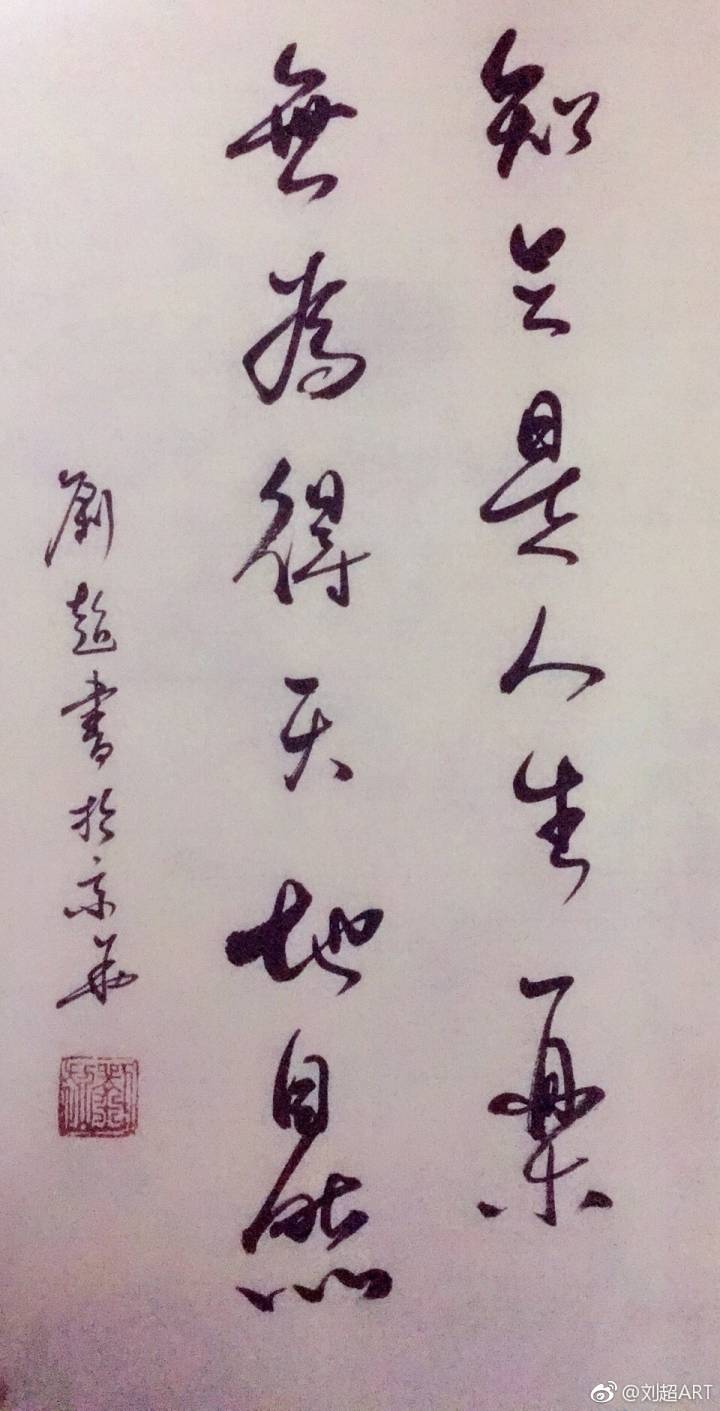 知足是人生一樂
無為得天地自然
劉超書於京華
@刘超ART